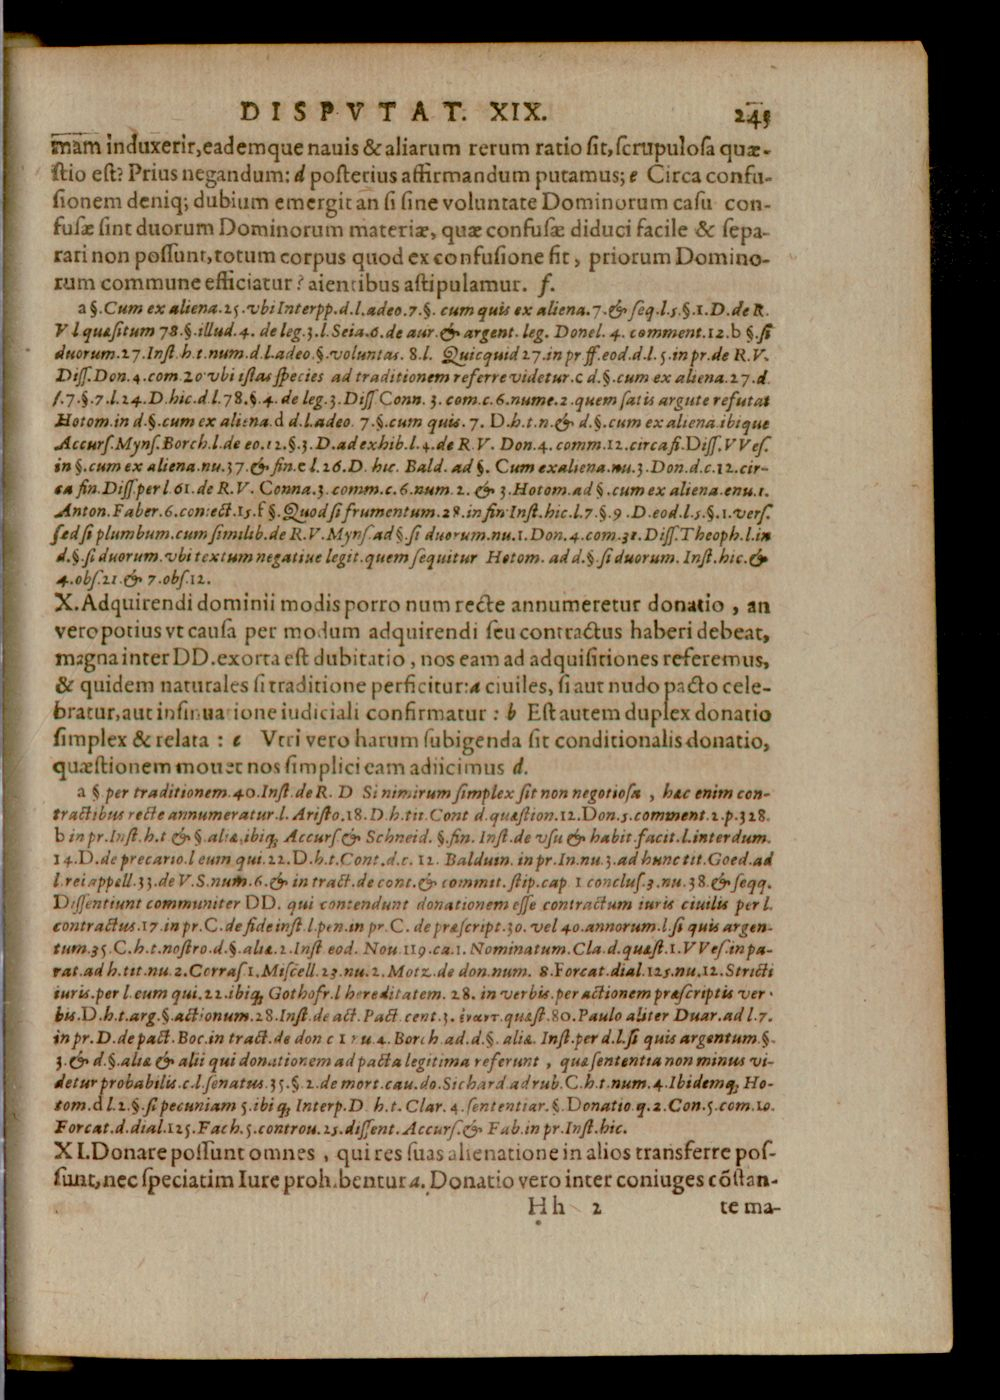 DISPVTAT. XIX. 243
mam induxerit, eademque nauis & aliarum rerum ratio sit, scrupulosa quæ-
stio est? Prius negandum: d posterius affirmandum putamus; e Circa confu-
sionem deniq; dubium emergit an si sine voluntate Dominorum casu con-
fusæ sint duorum Dominorum materiæ, quæ confusæ diduci facile & sepa-
rari non possunt, totum corpus quod ex confusione fit, priorum Domino-
rum commune efficiatur? aientibus astipulamur. f.
a §. Cum ex aliena. 25. vbi Interpp. d. l. adeo. 7. §. cum quis ex aliena. 7. & seq. l. 5. §. 1. D. de R.
V l quæsitum 78. §. illud. 4. de leg. 3. l. Seia. 6. de aur. & argent. leg. Donel. 4. comment. 12. b §. si
duorum. 27. Inst. h. t. num. d. l. adeo. §. voluntas. 8. l. Quicquid 27. in pr ff. eod. d. l. 5. in pr. de R. V.
Diss. Don. 4. com. 20 vbi istas species ad traditionem referre videtur. c d. §. cum ex aliena. 27. d.
l. 7. §. 7. l. 24. D. hic. d l. 78. §. 4. de leg. 3. Diss Conn. 3. com. c. 6. nume. 2. quem satis argute refutat
Hotom in d. §. cum ex aliena. d d. l. adeo. 7. §. cum quis. 7. D. h. t. n. & d. §. cum ex aliena ibique
Accurs. Myns. Borch. l. de eo. 12. §. 3. D. ad exhib. l. 4. de R. V. Don. 4. comm. 12. circa fi. Diss. VVes.
in §. cum ex aliena. nu. 37. & fin. e l. 26. D. hic. Bald. ad §. Cum ex aliena. nu. 3. Don. d. c. 12. cir-
ca fin. Diss. per l 61. de R. V. Conna. 3. comm. c. 6. num. 2. & 3. Hotom. ad §. cum ex aliena. enu. 1.
Anton. Faber. 6. coniect. 15. f §. Quod si frumentum. 28. in fin Inst. hic. l. 7. §. 9. D. eod. l. 5. §. 1. vers.
sed si plumbum. cum similib. de R. V. Myns. ad §. si duorum. nu. 1. Don. 4. com. 31. Diss. Theoph. l. in
d. §. si duorum. vbi textum negatiue legit. quem sequitur Hotom. ad d. §. si duorum. Inst. hic. &
4. obs. 21. & 7. obs. 12.
X. Adquirendi dominii modis porro num recte annumeretur donatio, an
vero potius vt causa per modum adquirendi seu contractus haberi debeat,
magna inter DD. exorta est dubitatio, nos eam ad adquisitiones referemus,
& quidem naturales si traditione perficitur: a ciuiles, si aut nudo pacto cele-
bratur, aut insinuatione iudiciali confirmatur: b Est autem duplex donatio
simplex & relata: c Vtri vero harum subigenda sit conditionalis donatio,
quæstionem mouet nos simplici eam adiicimus d.
a § per traditionem. 40. Inst. de R. D Si nimirum simplex sit non negotiosa, hæc enim con-
tractibus recte annumeratur. l. Aristo. 18. D. h. tit. Cont d. quæstion. 12. Don. 5. comment. 2. p. 328.
b in pr. Inst. h. t & §. aliæ. ibiq; Accurs. & Schneid. §. fin. Inst. de vsu & habit. facit. l. interdum.
14. D. de precario. l eum qui. 22. D. h. t. Cont. d. c. 12. Balduin. in pr. In. nu. 3. ad hunc tit. Goed. ad
l. rei appell. 33. de V. S. num. 6. & in tract. de cont. & commit. stip. cap 1 conclus. 3. nu. 38. & seqq.
Dissentiunt communiter DD. qui contendunt donationem esse contractum iuris ciuilis per l.
contractus. 17. in pr. C. de fide inst. l. pen. in pr. C. de præscript. 30. vel 40. annorum. l. si quis argen-
tum. 35. C. h. t. nostro. d. §. aliæ. 2. Inst eod. Nou. 119. ca. 1. Nominatum. Cla. d. quæst. 1. VVes. in pa-
rat. ad h. tit. nu. 2. Corras 1. Miscell. 23. nu. 2. Motz. de don. num. 8. Forcat. dial. 125. nu. 12. Stricti
iuris. per l. eum qui. 22. ibiq; Gothofr. l hereditatem. 28. in verbis. per actionem præscriptis ver-
bis. D. h. t. arg. §. actionum. 28. Inst. de act. Pact. cent. 3. quæst. 80. Paulo aliter Duar. ad l. 7.
in pr. D. de pact. Boc. in tract. de don c 1 nu. 4. Borch. ad. d. §. aliæ. Inst. per d. l. si quis argentum. §.
3. & d. §. aliæ & alii qui donationem ad pacta legitima referunt, quæ sententia non minus vi-
detur probabilis. c. l. senatus. 35. §. 2. de mort. cau. do. Sichard. ad rub. C. h. t. num. 4. Ibidemq; Ho-
tom. d l. 2. §. si pecuniam 5. ibiq; Interp. D h. t. Clar. 4. sententiar. §. Donatio. q. 2. Con. 5. com. 10.
Forcat. d. dial. 125. Fach. 5. controu. 25. dissent. Accurs. & Fab. in pr. Inst. hic.
XI. Donare possunt omnes, qui res suas alienatione in alios transferre pos-
sunt, nec speciatim Iure prohibentur a. Donatio vero inter coniuges cōstan-
Hh 2 te ma-